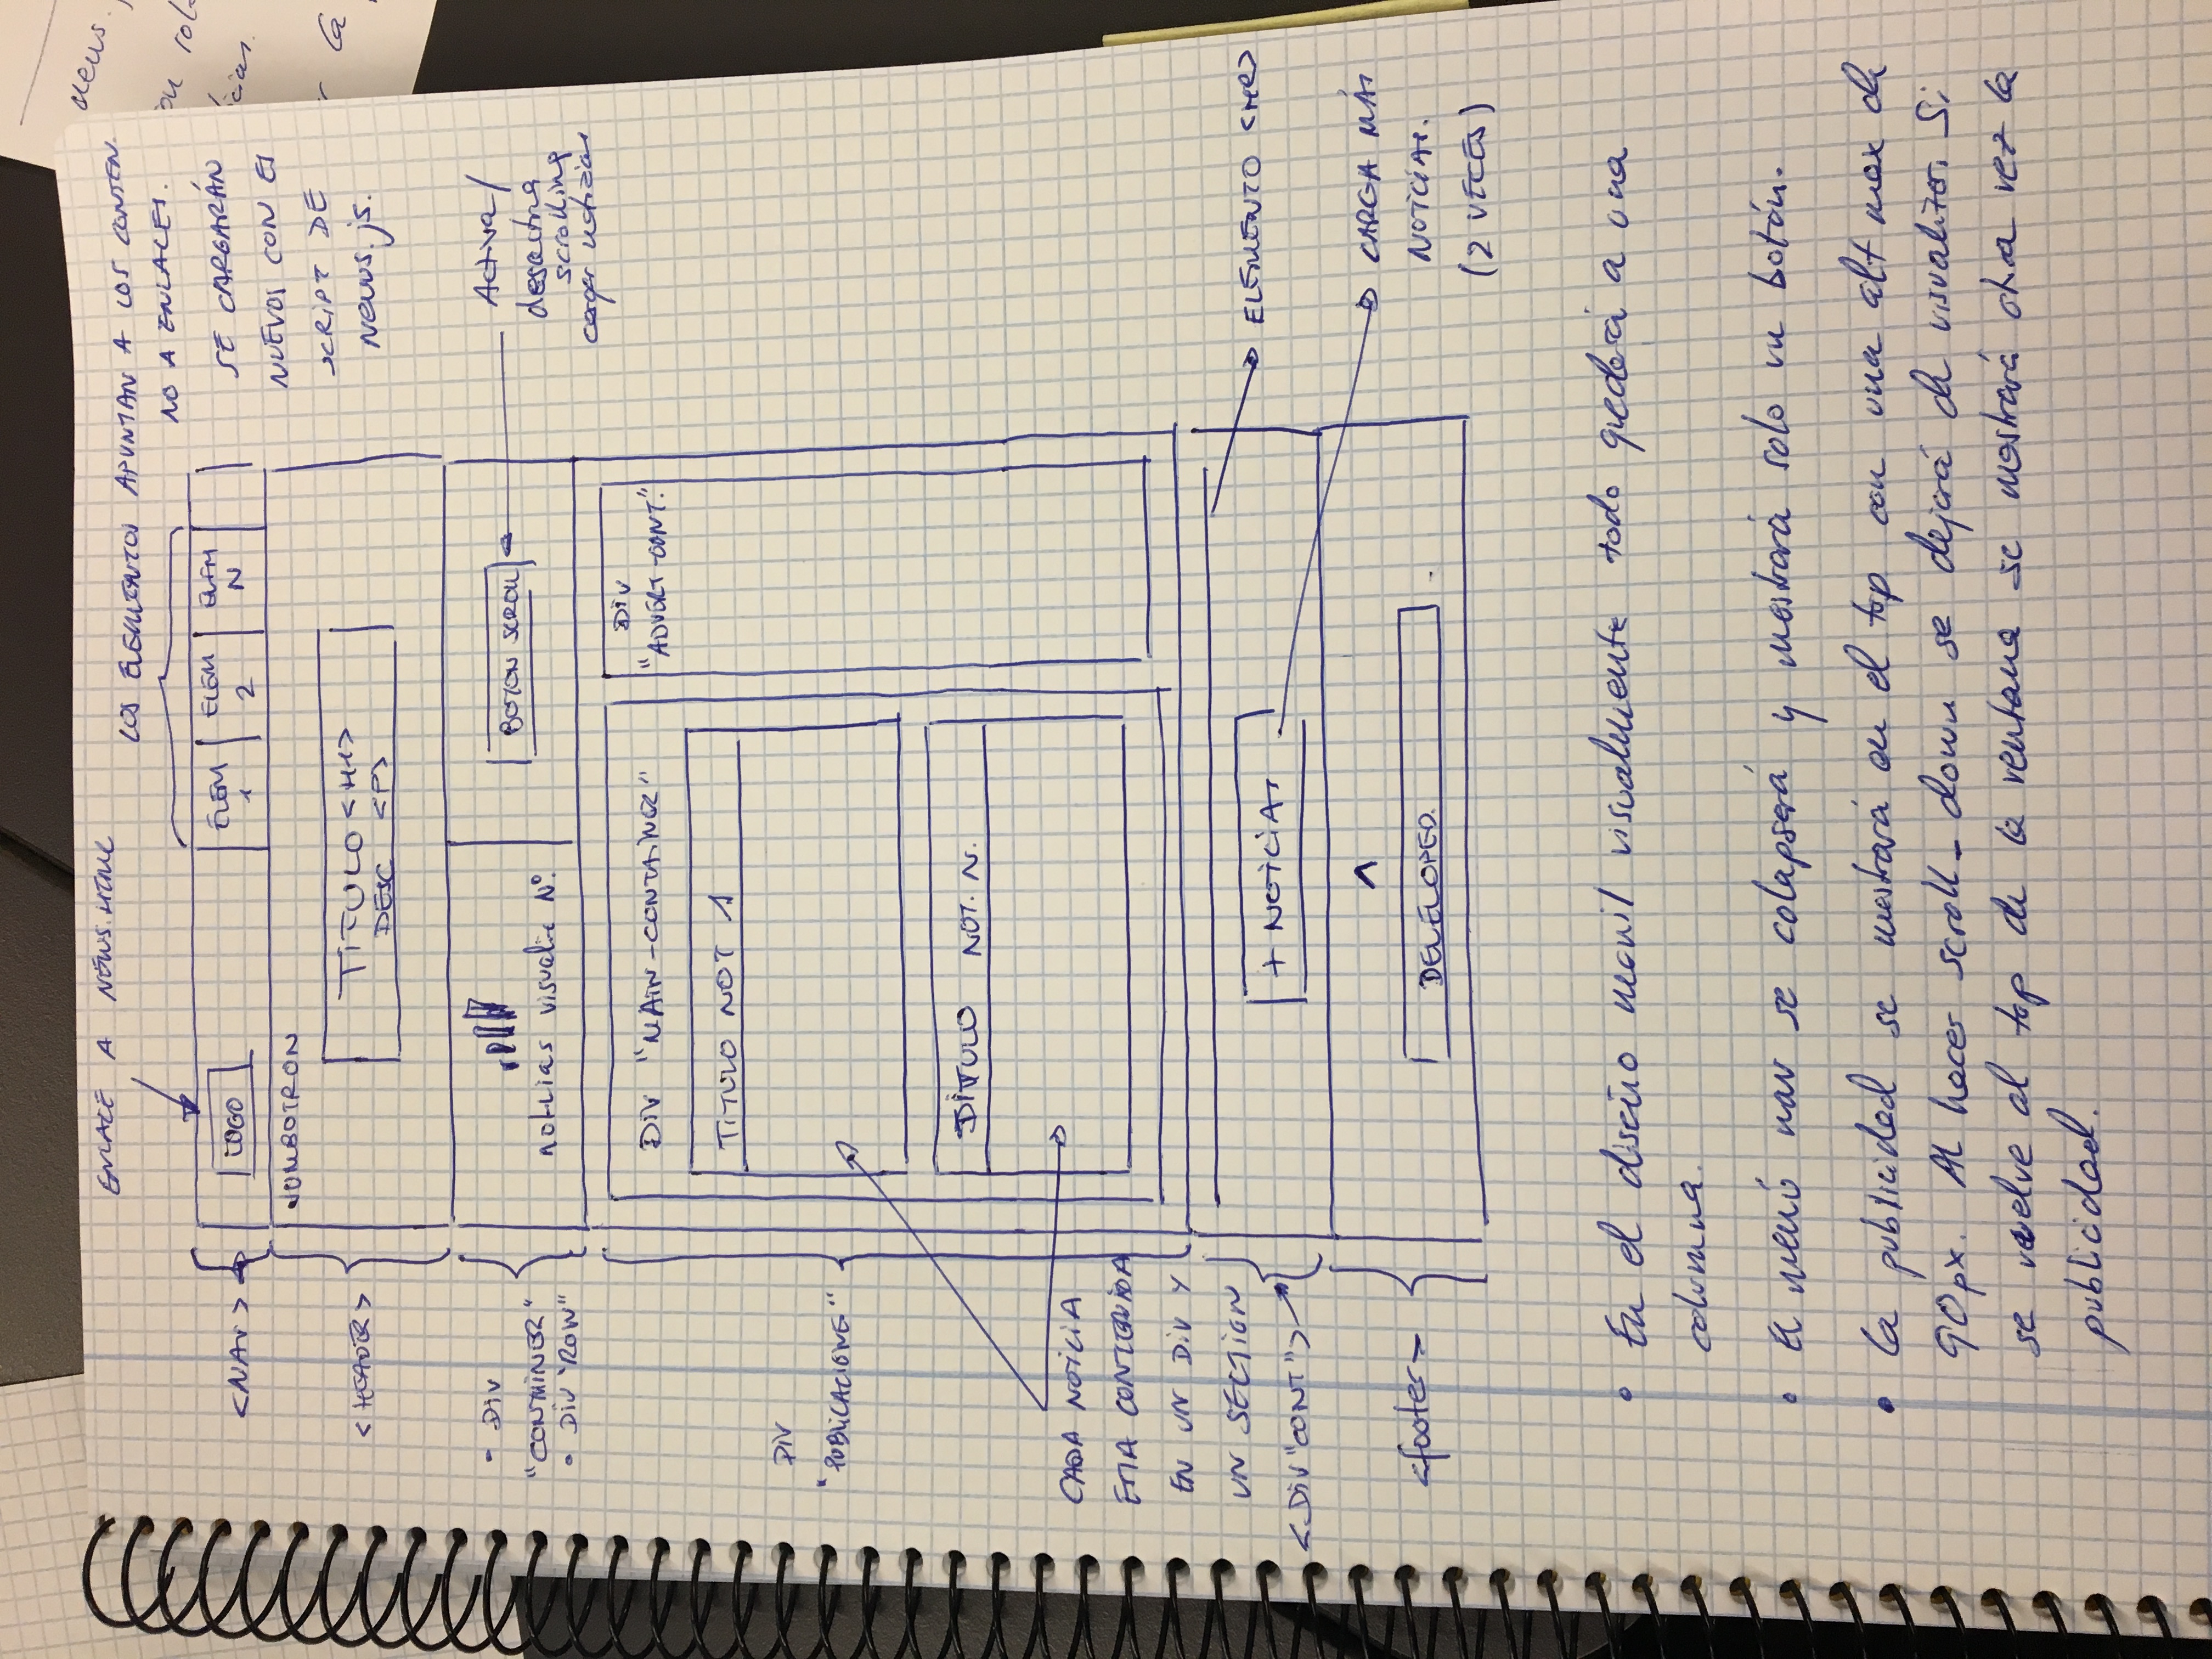 ENLACE A NEWS.HTML
LOS ELEMENTOS APUNTAN A LOS CONTEN.
NO A ENLACES.
SE CARGARÁN
NUEVOS CON El
SCRIPT DE
News.js.
<NAV>
LOGO
ELEM
1
ELEM
2
ELEM
N
<HEADER>
JUMBOTRON
TITULO <H1>
DESC <P>
- DIV
"CONTAINER"
• DIV "ROW"
noticias visualiz Nº.
BOTON SCROLL
Activa/
desactiva
scrolling
cargar noticias
DIV
"PUBLICACIONE"
DIV "MAIN-CONTAINER"
TITULO NOT 1
TITULO NOT. N.
DIV
"ADVERT-CONT."
CADA NOTICIA
ESTA CONTENIDA
EN UN DIV Y
UN SECTION
<DIV "CONT">
+ NOTICIAS
ELEMENTO <HR>
CARGA MÁS
NOTICIAS.
(2 VECES)
<footer>
^
DEVELOPED.
• En el diseño movil visualmente todo quedará a una
columna.
• El menú nav se colapsará y mostrará solo un botón.
• La publicidad se mostrará en el top con una alt max de
90px. Al hacer scroll-down se dejará de visualizar. Si
se vuelve al top de la ventana se mostrará otra vez la
publicidad.
news.